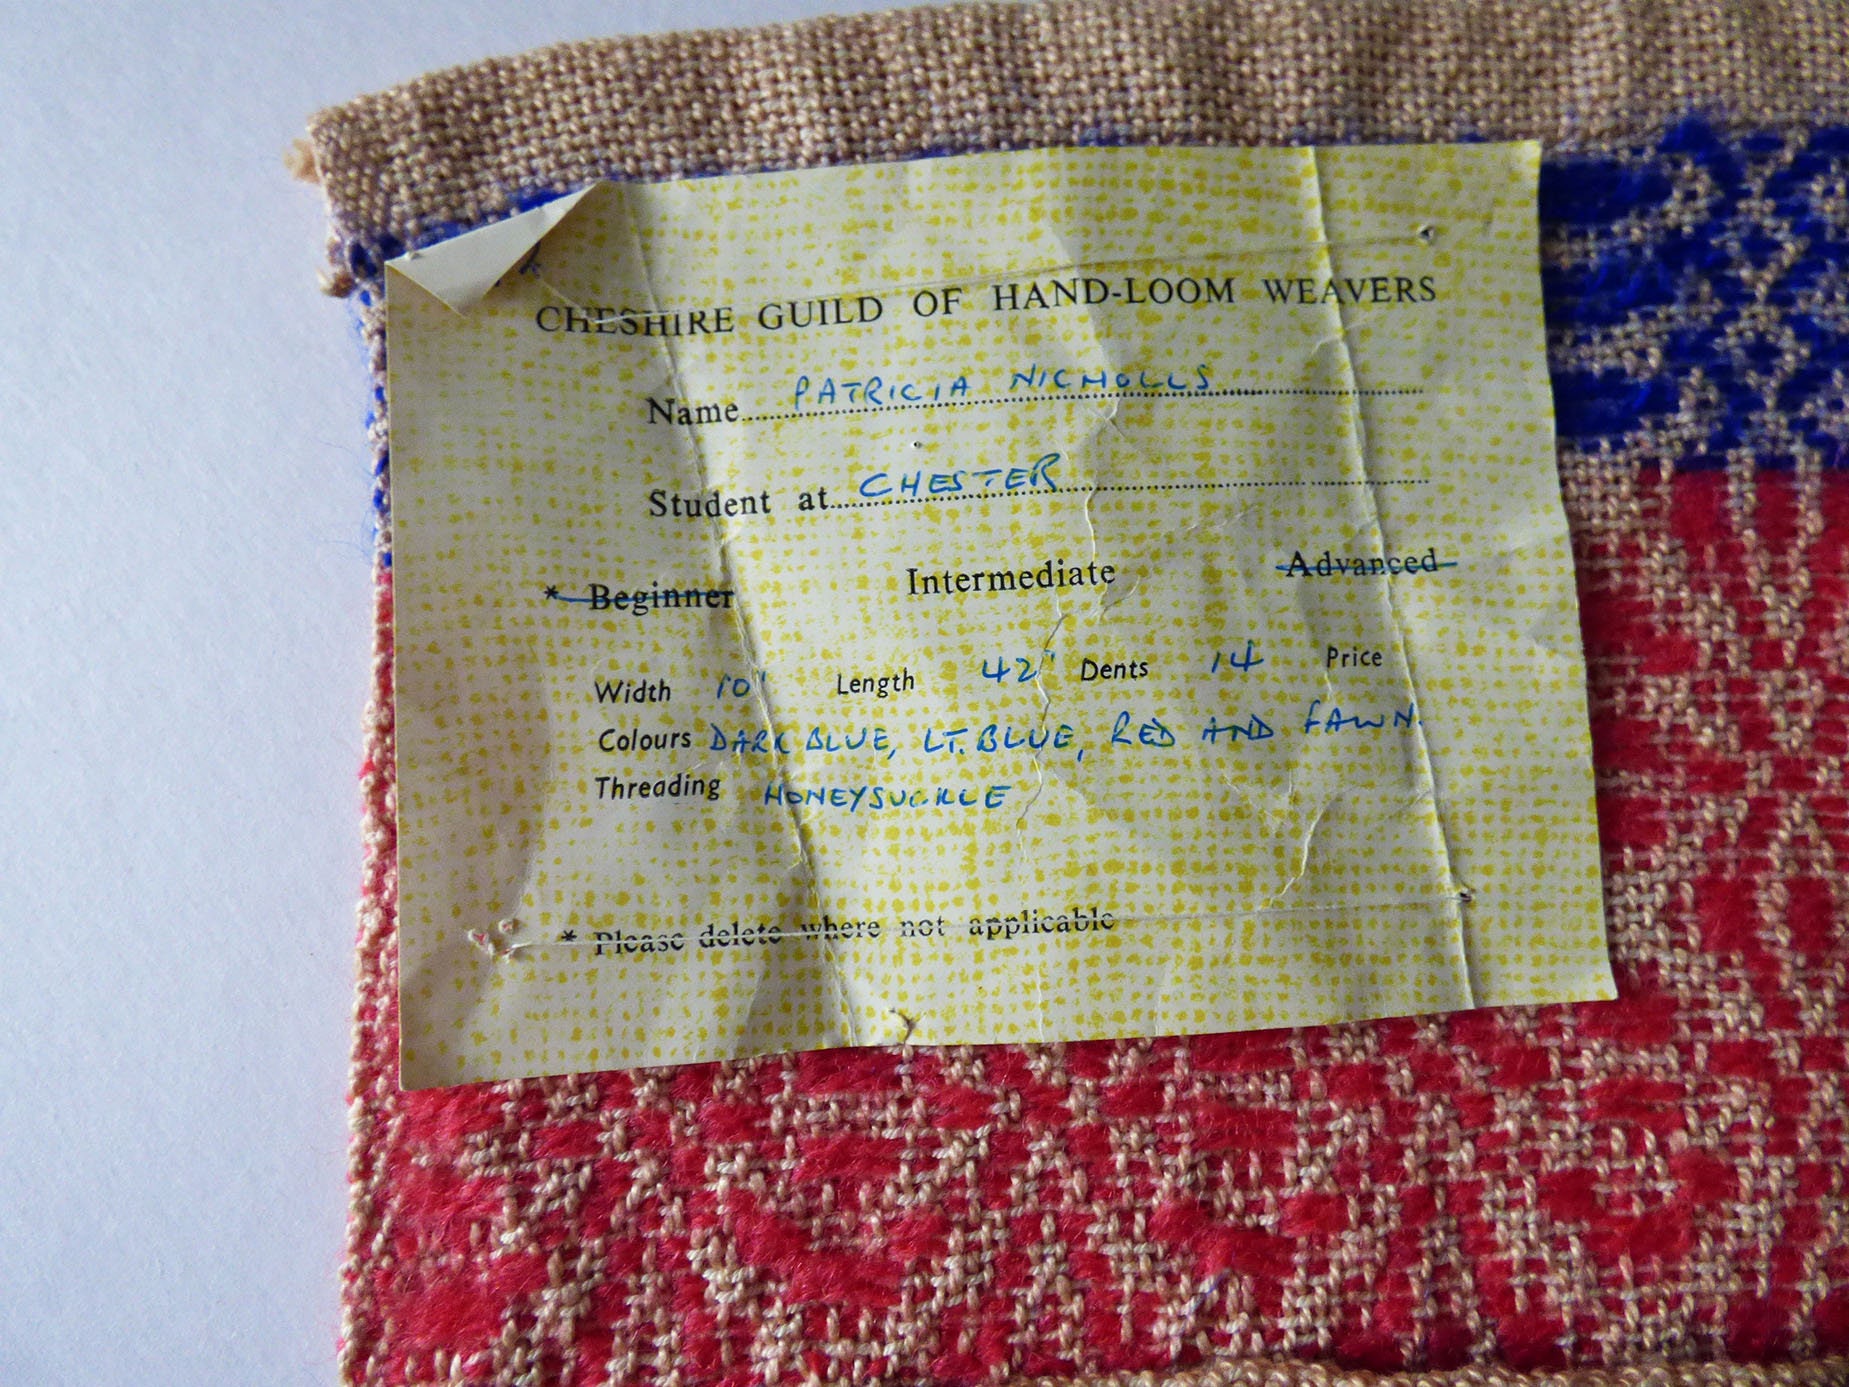 CHESHIRE GUILD OF HAND-LOOM WEAVERS
Name PATRICIA NICHOLLS
Student at CHESTER
* Beginner Intermediate Advanced
Width 10" Length 42" Dents 14 Price
Colours DARK BLUE, LT. BLUE, RED AND FAWN.
Threading HONEYSUCKLE
* Please delete where not applicable